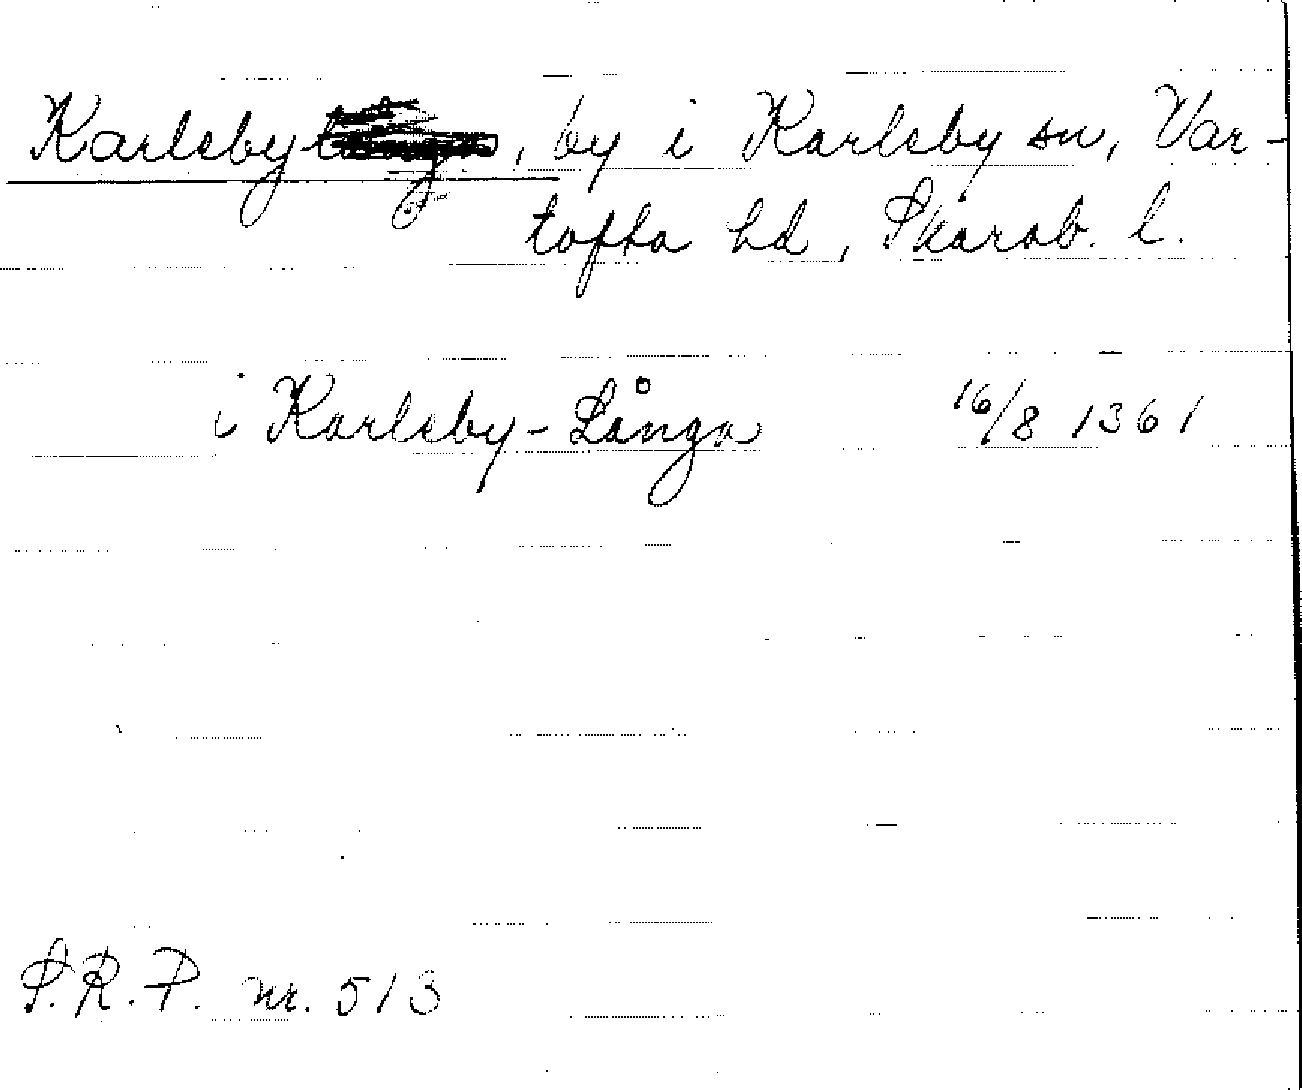 Karleby, by i Karleby sn, Var-
tofta hd, Skarab. l.
i Karleby-Långa 16/8 1361
S.R.P. nr. 513